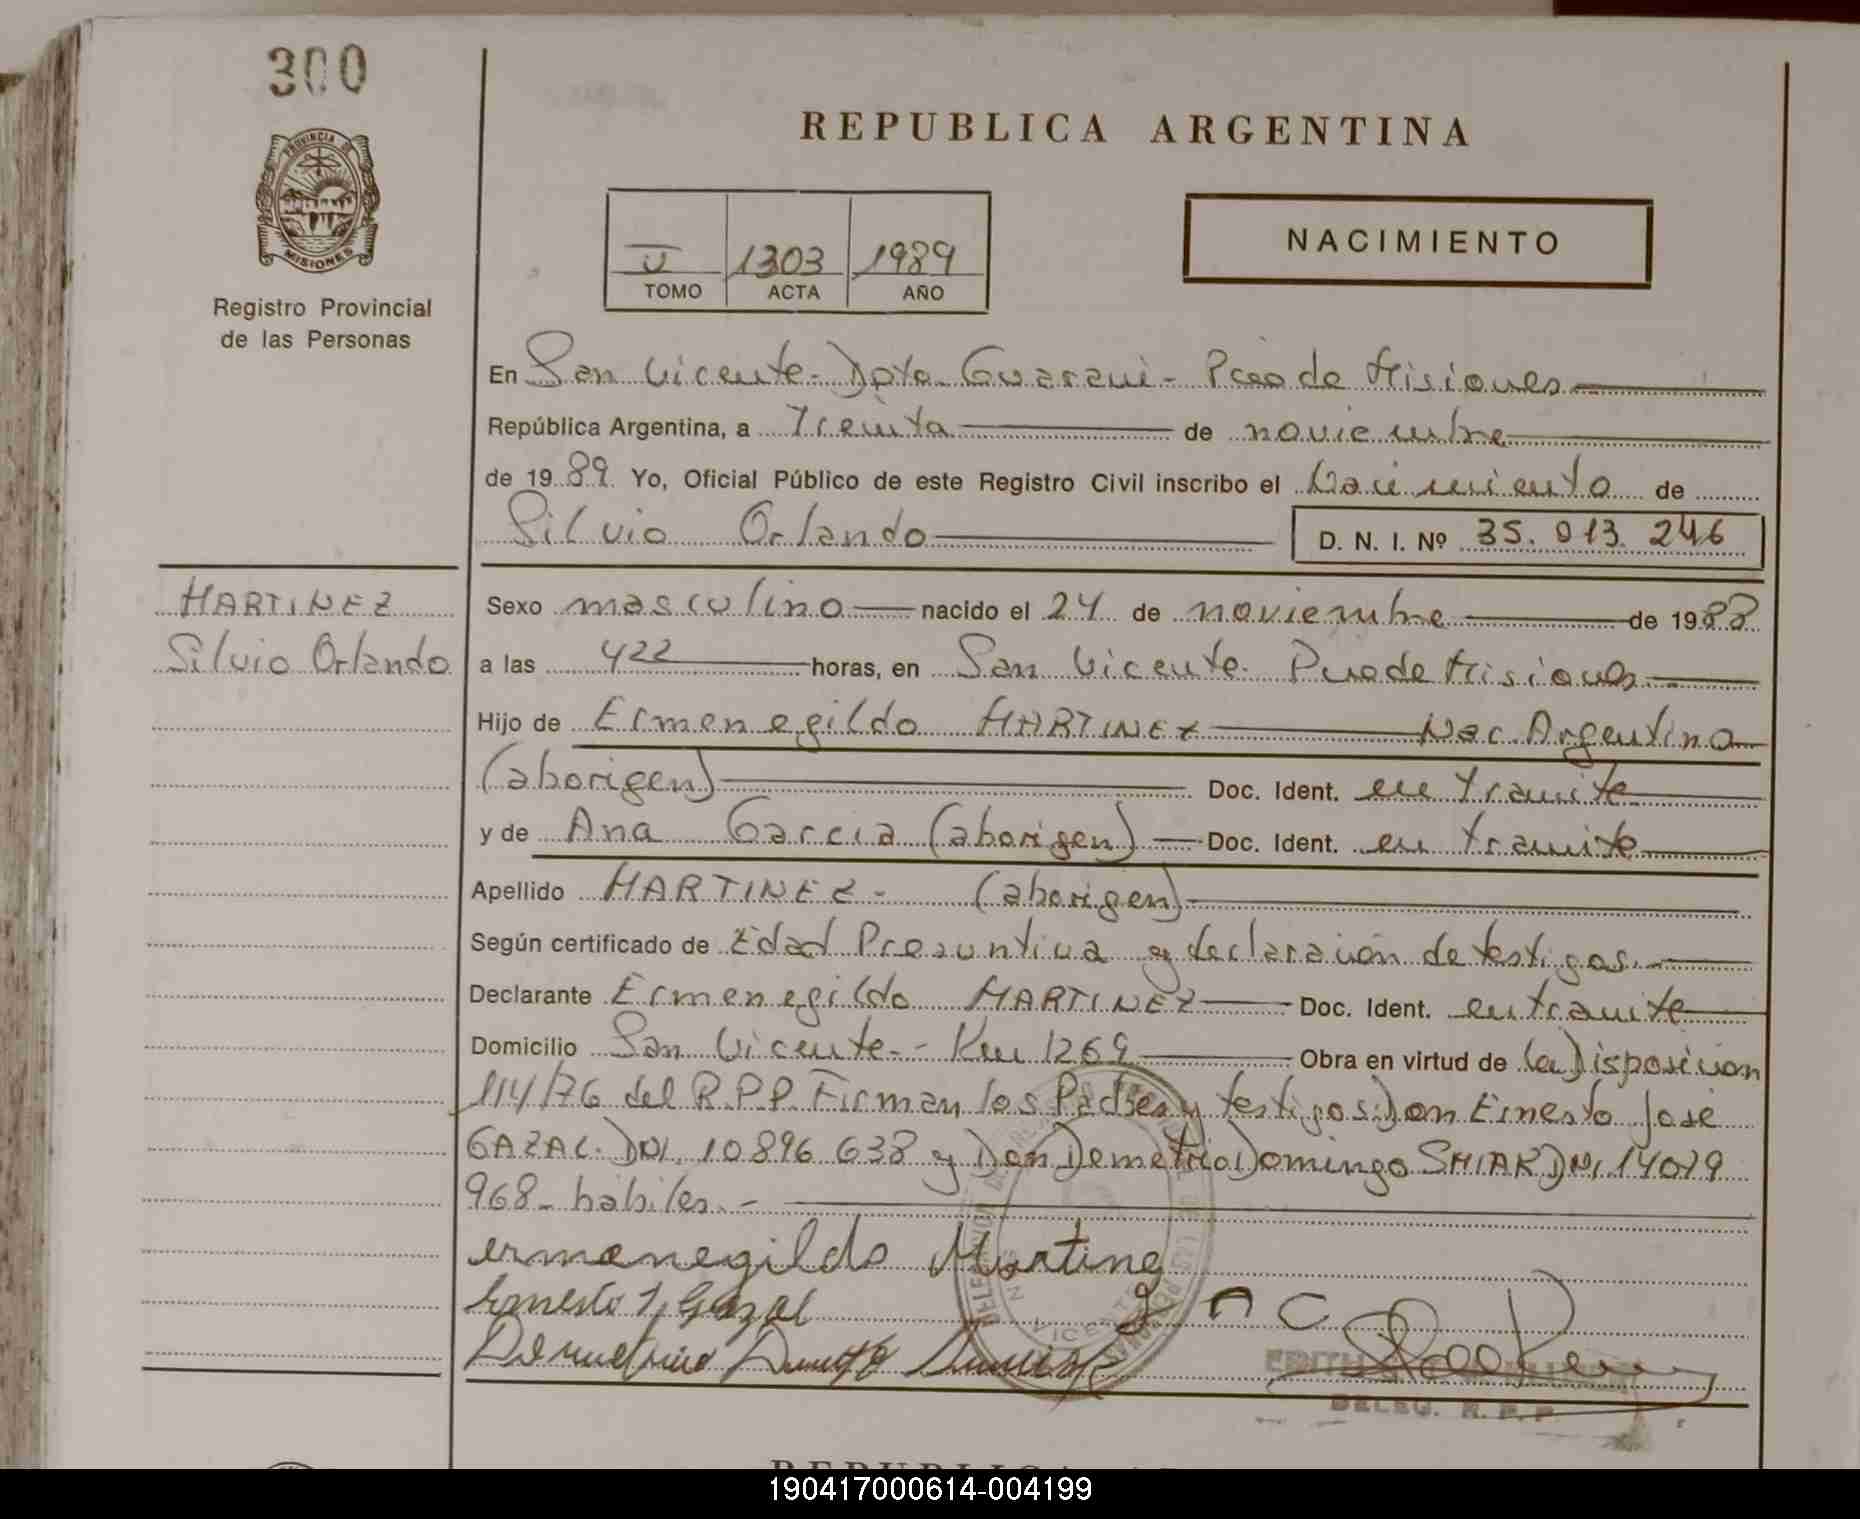 300
REPUBLICA ARGENTINA
PROVINCIA DE
MISIONES
Registro Provincial
de las Personas
1303 1989
TOMO ACTA AÑO
NACIMIENTO
En San Vicente - Dpto Guarani - Pcia de Misiones
República Argentina, a Treinta de noviembre
de 1989 Yo, Oficial Público de este Registro Civil inscribo el Nacimiento de
Silvio Orlando
D. N. I. Nº 35.013.246
MARTINEZ
Silvio Orlando
Sexo masculino nacido el 24 de noviembre de 1988
a las 422 horas, en San Vicente. Pcia de Misiones
Hijo de Ermenegildo MARTINEZ Nac. Argentino
(aborigen) Doc. Ident. en tramite
y de Ana Garcia (aborigen) Doc. Ident. en tramite
Apellido MARTINEZ - (aborigen)
Según certificado de Edad Presuntiva y declaración de testigos.
Declarante Ermenegildo MARTINEZ Doc. Ident. en tramite
Domicilio San Vicente - Km 1269 Obra en virtud de la Disposicion
114/76 del R.P.P. Firman los Padres y testigos: Don Ernesto José
GAZAL. DNI. 10896 638 y Don Demetrio Domingo SMIAK DNI 14029
968 - hábiles. -
ermenegildo Martine
Ernesto J. Gazal
z n C
EDITH
DELEG. R. P. P.
VICENTE
190417000614-004199